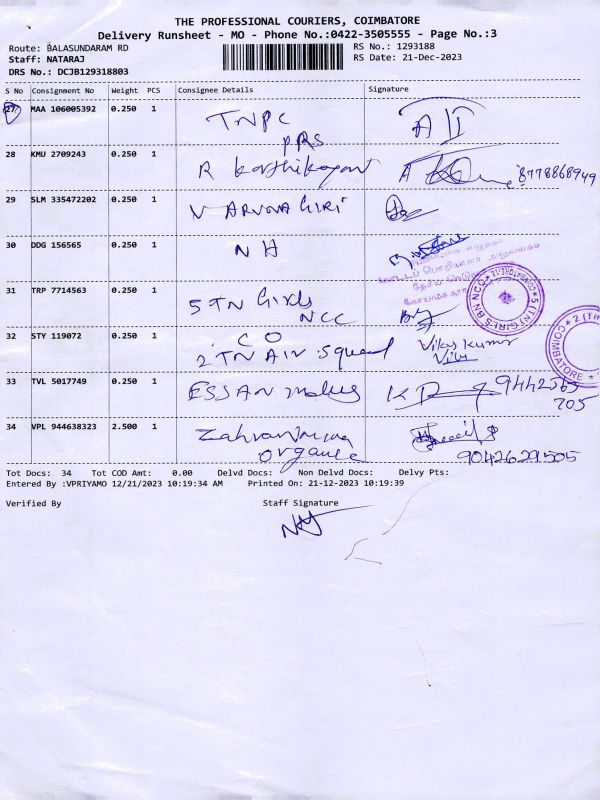 THE PROFESSIONAL COURIERS, COIMBATORE
Delivery Runsheet - MO - Phone No.:0422-3505555 - Page No.:3
Route: BALASUNDARAM RD
RS No.: 1293188
Staff: NATARAJ
RS Date: 21-Dec-2023
DRS No.: DCJB129318803
S No Consignment No Weight PCS Consignee Details Signature
27 MAA 106005392 0.250 1 TNPC
PRS
28 KMU 2709243 0.250 1 R Karthikeyan 8778868949
29 SLM 335472202 0.250 1 V ARVNA GIRI
30 DDG 156565 0.250 1 N H
31 TRP 7714563 0.250 1 5 TN Girls
NCC
5 (TN) GIRLS BN NCC COIMBATORE
32 STY 119072 0.250 1 CO
2 TN AIR Squad Vikas Kumar
COIMBATORE
33 TVL 5017749 0.250 1 ESSAN 9442565
705
34 VPL 944638323 2.500 1 organic
9042629505
Tot Docs: 34 Tot COD Amt: 0.00 Delvd Docs: Non Delvd Docs: Delvy Pts:
Entered By :VPRIYAMO 12/21/2023 10:19:34 AM Printed On: 21-12-2023 10:19:39
Verified By Staff Signature